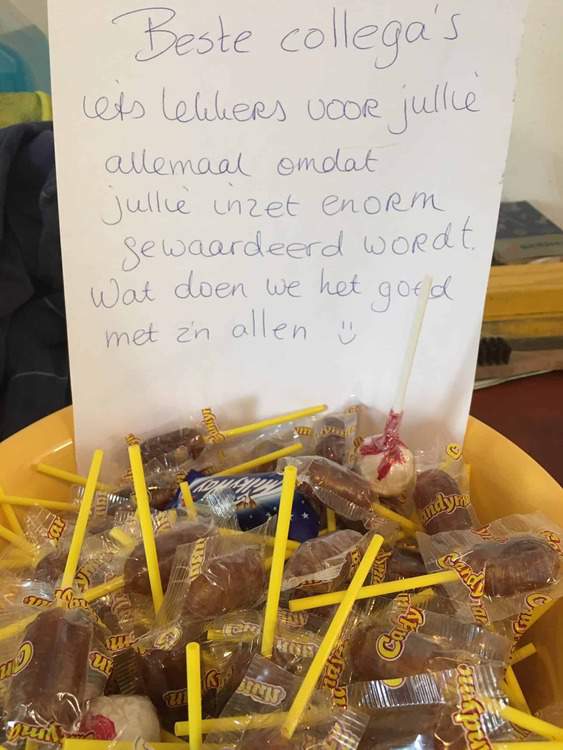 Beste collega's
iets lekkers voor jullie
allemaal omdat
jullie inzet enorm
gewaardeerd wordt.
Wat doen we het goed
met z'n allen
Milky Way
Candyman